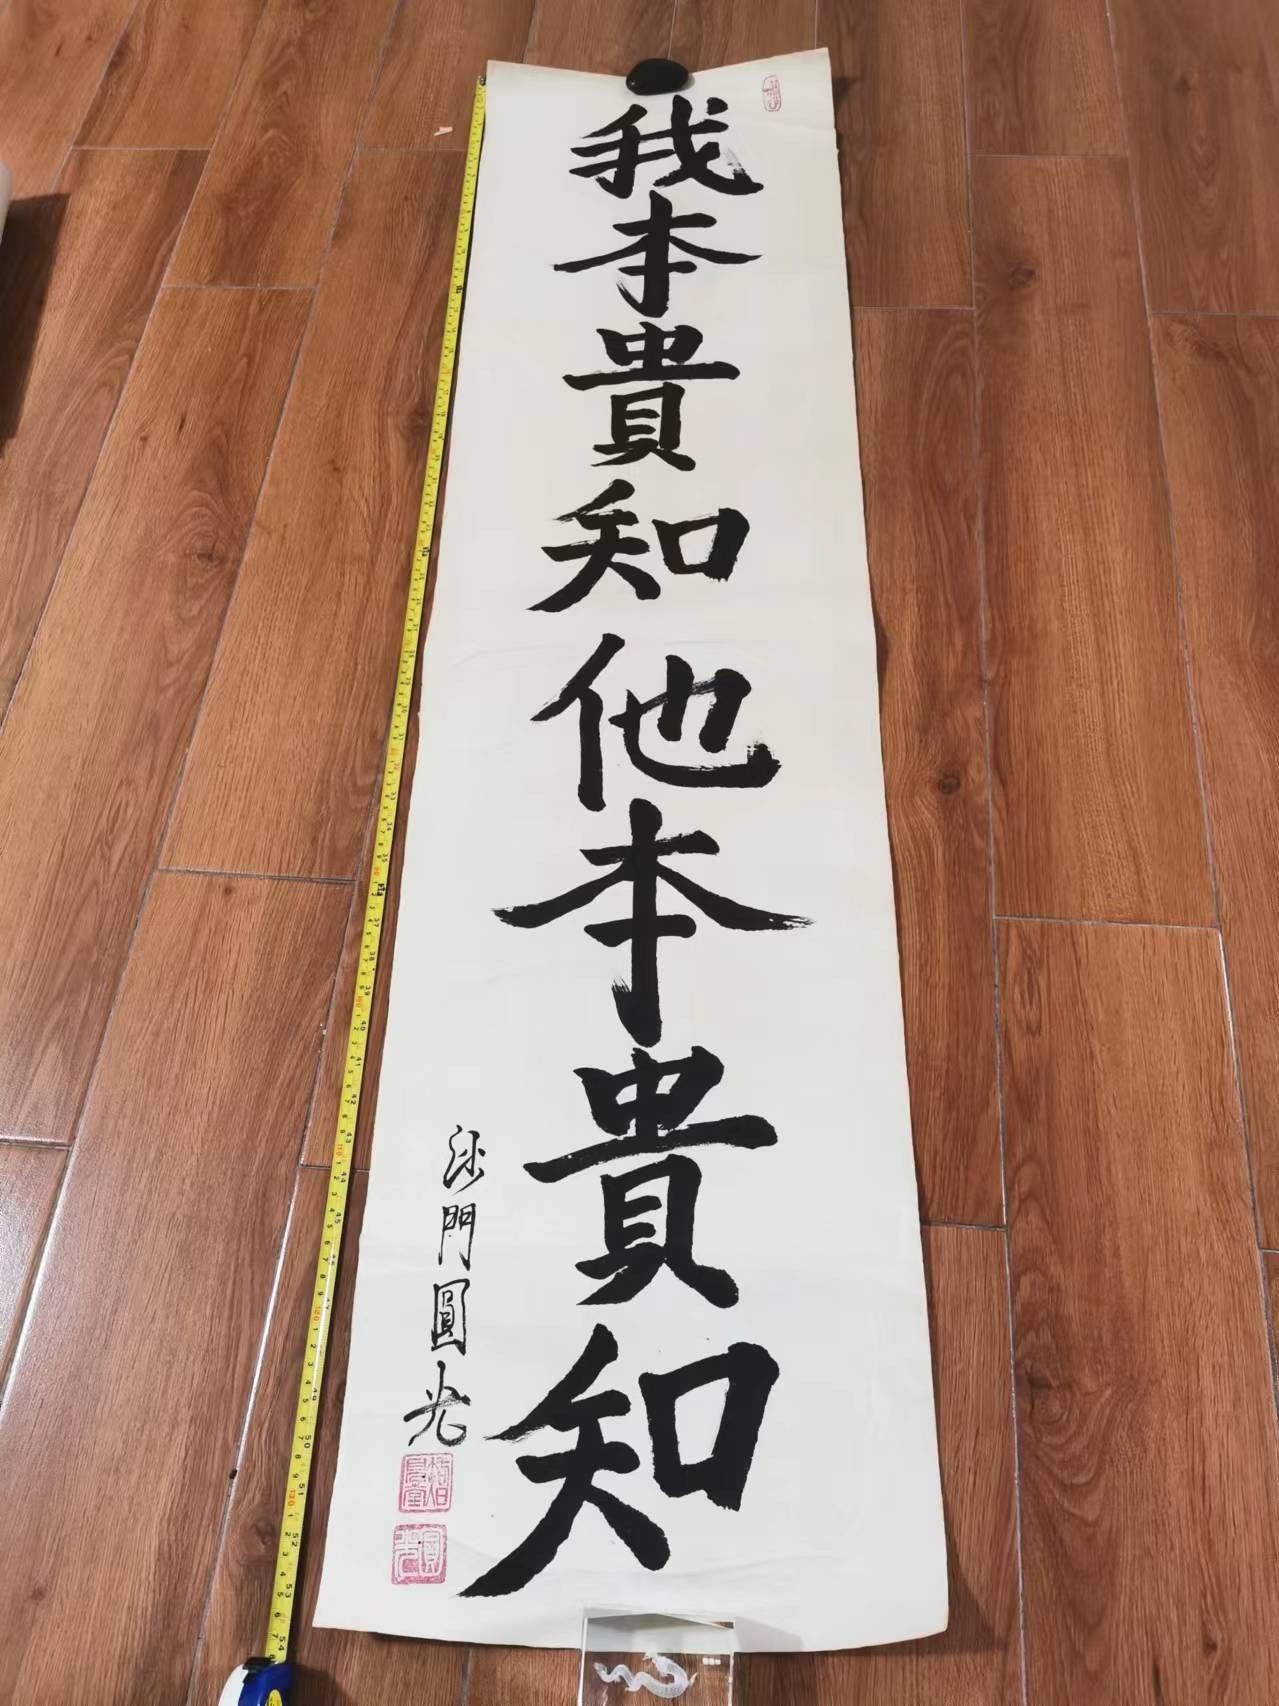 我本貴知他本貴知
沙門圓光
圓光